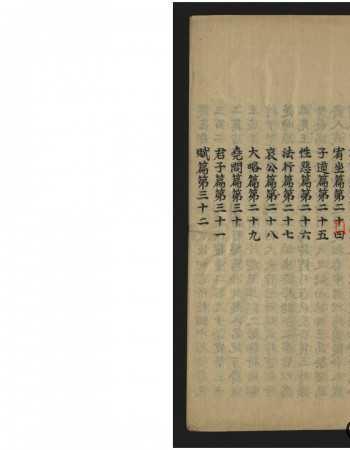 宥坐篇第二十四
子道篇第二十五
性惡篇第二十六
法行篇第二十七
哀公篇第二十八
大略篇第二十九
堯問篇第三十
君子篇第三十一
賦篇第三十二